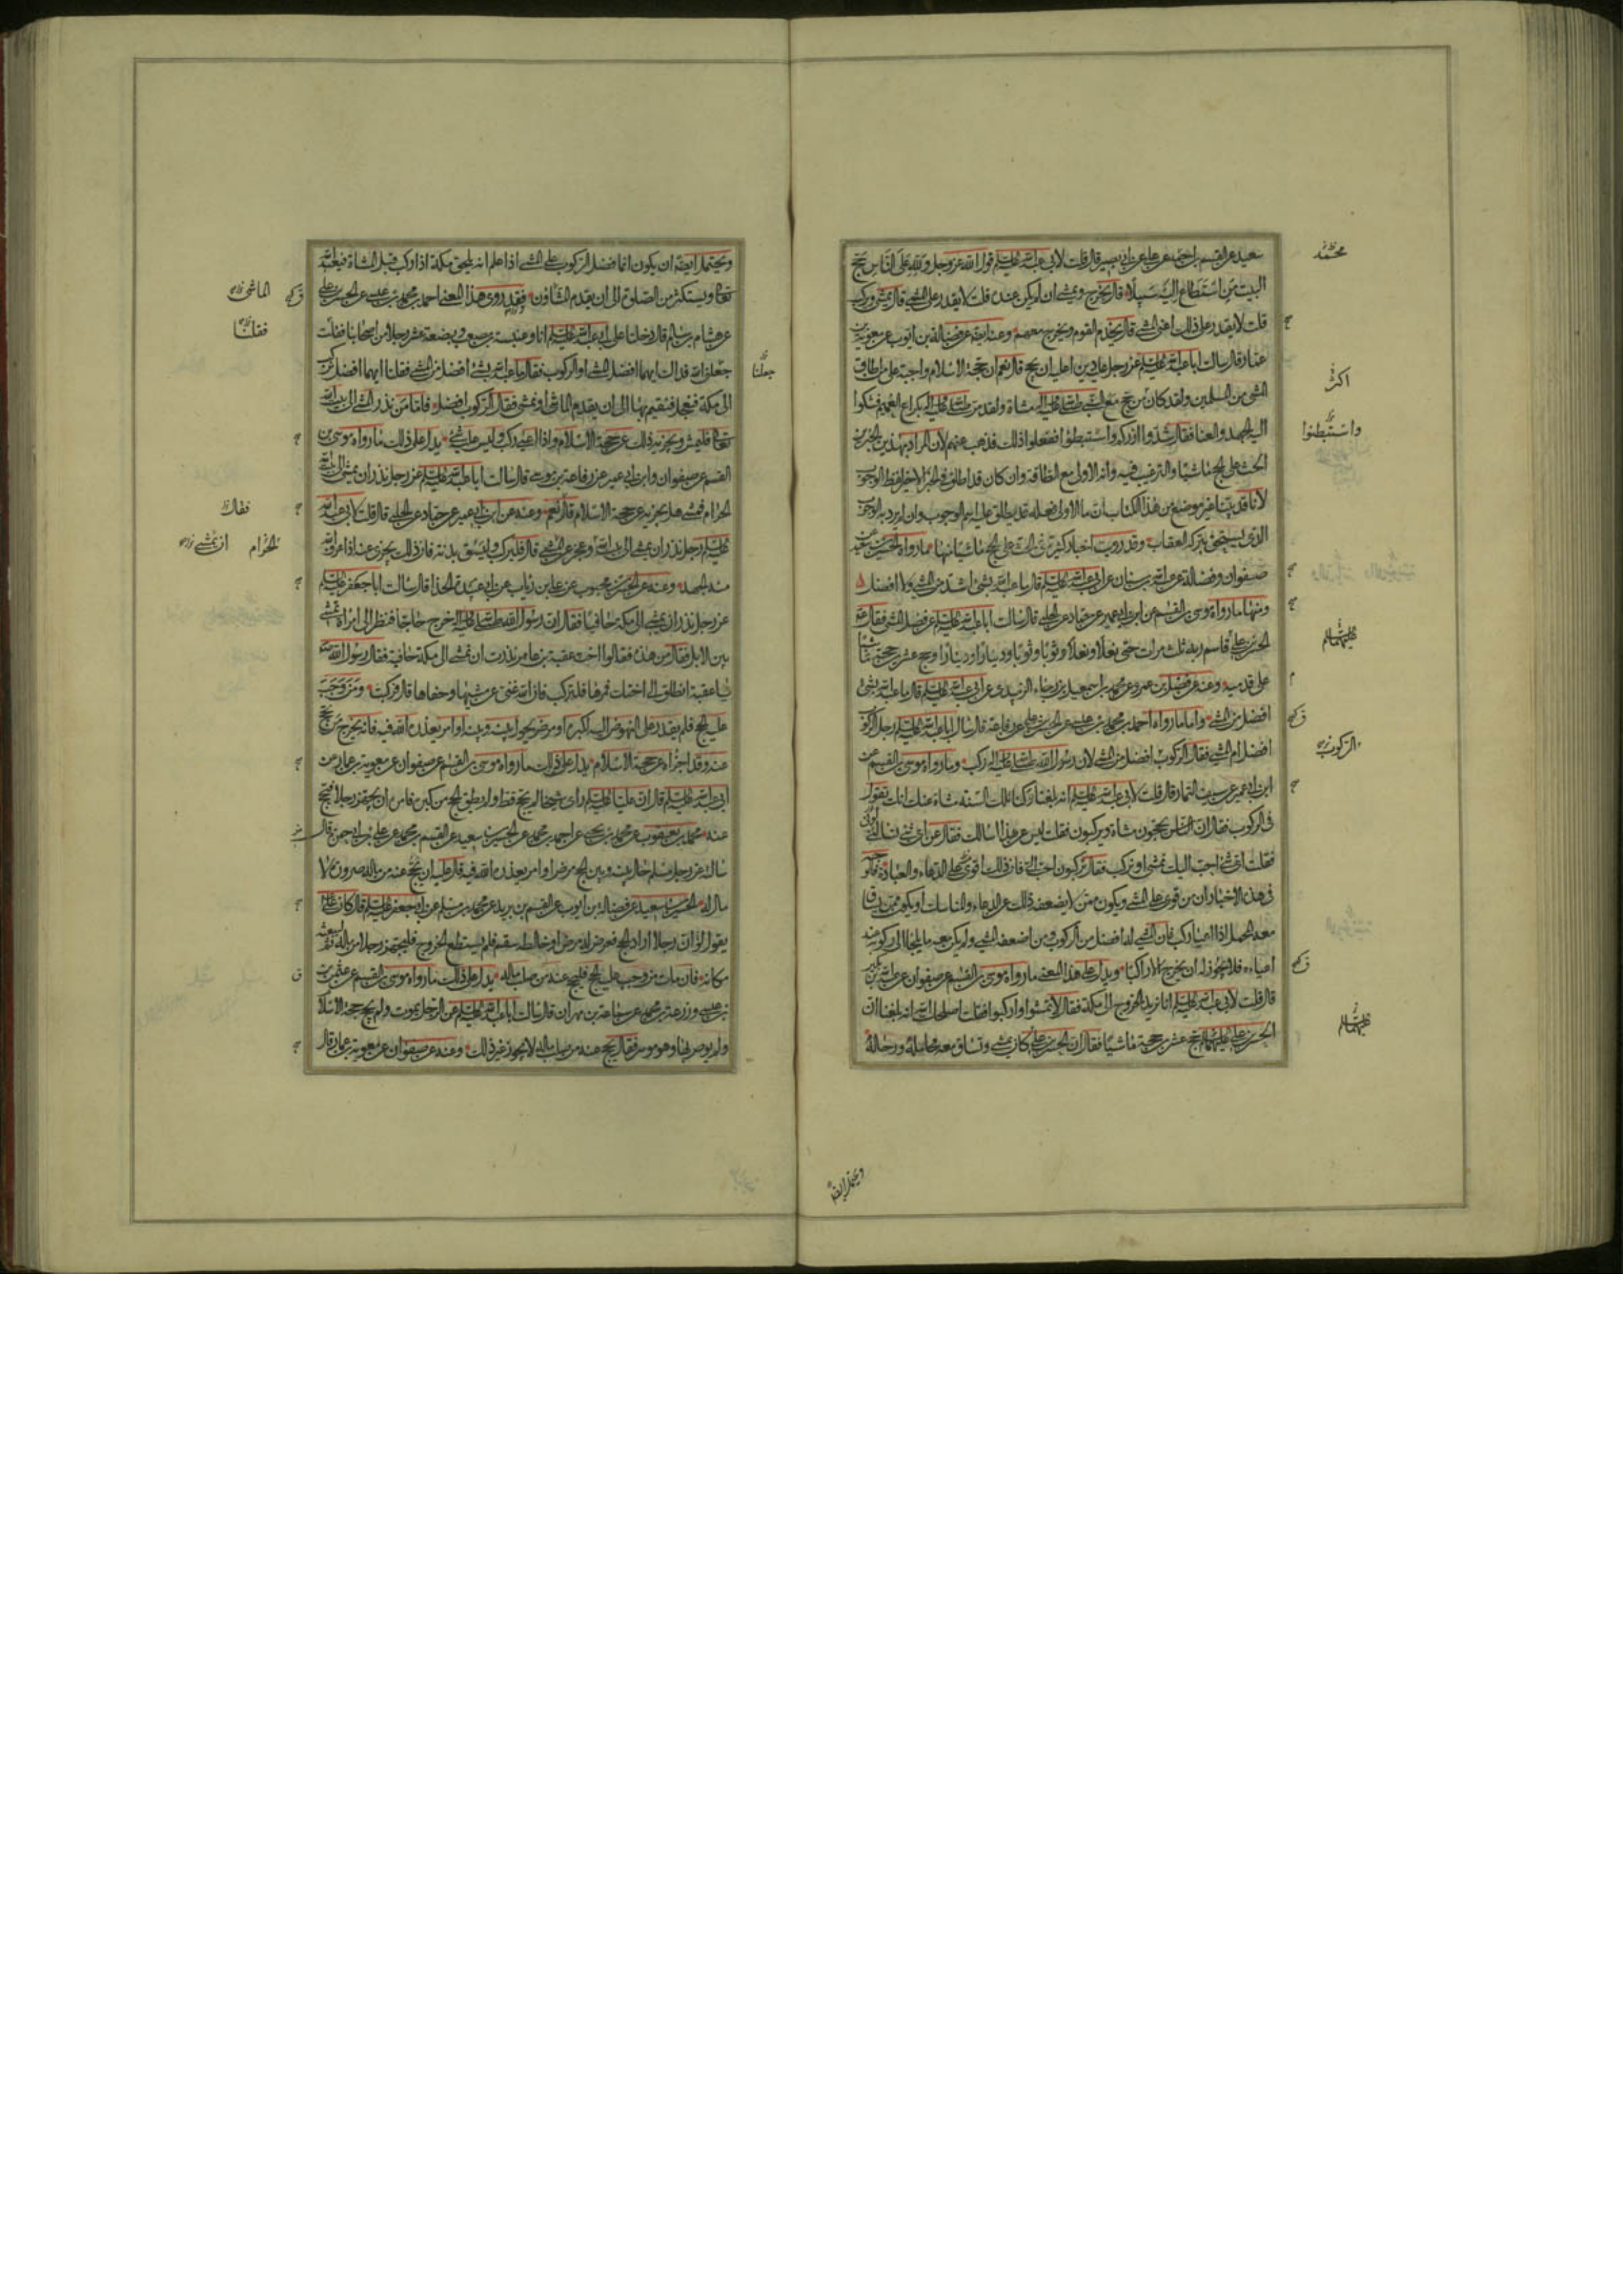 سعيد عن القسم بن احمد عن علي عن ابي بصير قال قلت لابي عبد الله عليه السلم قول الله عز وجل ولله على الناس حج
البيت من استطاع اليه سبيلا قال يخرج ويمشي ان لم يكن عنده قلت لا يقدر على المشي قال يمشي ويركب
قلت لا يقدر على ذلك اعني المشي قال يخدم القوم ويخرج معهم وعنه ايضا عن فضالة بن ايوب عن معوية بن
عمار قال سالت ابا عبد الله عليه السلم عن رجل عليه دين اعليه ان يحج قال نعم ان حجة الاسلام واجبة على من اطاق
المشي من المسلمين ولقد كان من حج مع النبي صلى الله عليه واله مشاة ولقد مر صلى الله عليه واله بكراع الغميم فشكوا
اليه الجهد والعنا فقال شدوا ازركم واستبطنوا ففعلوا ذلك فذهب عنهم لان المراد بهذين الخبرين
الحث على الحج ماشيا والترغيب فيه وانه الاولى مع الطاقة وان كان قد اطلق في الخبر الاخير لفظ الوجوب
لانا قد بينا في غير موضع من هذا الكتاب ان ما الاولى فعله قد يطلق عليه اسم الوجوب وان لم يرد به الوجوب
الذي يستحق بتركه العقاب وقد رويت اخبار كثيرة في الحث على الحج ماشيا منها ما رواه الحسين بن سعيد
صفوان وفضالة عن عبد الله بن سنان عن ابي عبد الله عليه السلم قال ما عبد الله بشيء اشد من المشي ولا افضل
ومنها ما رواه موسى بن القسم عن ابن ابي عمير عن حماد عن الحلبي قال سالت ابا عبد الله عليه السلم عن فضل المشي فقال
الحسن بن علي قاسم ربه ثلث مرات حتى نعلا ونعلا وثوبا وثوبا ودينارا ودينارا وحج عشرين حجة ماشيا
على قدميه وعنه عن فضل بن عمرو عن محمد بن اسمعيل بن رجاء الزبيدي عن ابي عبد الله عليه السلم قال ما عبد الله بشيء
افضل من المشي واما ما رواه احمد بن محمد بن عيسى عن الحسن بن علي عن رفاعة قال سال ابا عبد الله عليه السلم رجل الركوب
افضل ام المشي فقال الركوب افضل من المشي لان رسول الله صلى الله عليه واله ركب وما رواه موسى بن القسم عن
ابن ابي عمير عن سيف التمار قال قلت لابي عبد الله عليه السلم انه بلغنا وكنا تلك السنة مشاة عنك انك تقول
في الركوب فقال ان الناس يحجون مشاة ويركبون فقلت ليس عن هذا اسالك فقال عن اي شيء تسالني
فقلت اي شيء احب اليك نمشي او نركب فقال تركبون احب الي فان ذلك اقوى على الدعاء والعبادة
في هذه الاخبار ان من قوي على المشي ويكون ممن لا يضعفه ذلك عن الدعاء والمناسك او يكون ممن ساق
معه المحمل اذا اعيا ركب فان المشي له افضل من الركوب ومن اضعفه المشي ولم يكن معه ما يلجأ الى ركوبه عند
اعيائه فلا يجوز له ان يخرج الا راكبا ويدل على هذا المعنى ما رواه موسى بن القسم عن صفوان عن عبد الله بن بكير
قال قلت لابي عبد الله عليه السلم انا نريد الخروج الى مكة فقال لا تمشوا واركبوا فقلت اصلحك الله انه بلغنا ان
الحسن بن علي عليهما السلم حج عشرين حجة ماشيا فقال ان الحسن بن علي كان يمشي وتساق معه محامله ورحاله
محمد
اكثر
واستبطنوا
عليهما السلم
الركوب
عليهما السلم
ويحتمل ايضا
ويحتمل ايضا ان يكون انما فضل الركوب على المشي اذا علم انه يلحق مكة اذا ركب قبل المشاة فيعبد الله
تعالى ويستكثر من الصلوة الى ان يقدم المشاؤن فقد روى هذا المعنى احمد بن محمد بن عيسى عن الحسن بن علي
عن هشام بن سالم قال دخلنا على ابي عبد الله عليه السلم انا وعنبسة بن مصعب وبضعة عشر رجلا من اصحابنا فقلت
جعلني الله فداك ايهما افضل المشي او الركوب فقال ما عبد الله بشيء افضل من المشي فقلنا ايهما افضل نركب
الى مكة فنعجل فنقيم بها الى ان يقدم الماشي او نمشي فقال الركوب افضل فاما من نذر المشي الى بيت الله
تعالى فليمش ويجزيه ذلك عن حجة الاسلام واذا اعيا ركب وليس عليه شيء يدل على ذلك ما رواه موسى بن
القسم عن صفوان وابن ابي عمير عن رفاعة بن موسى قال سالت ابا عبد الله عليه السلم عن رجل نذر ان يمشي الى بيت الله
الحرام فمشى هل يجزيه عن حجة الاسلام قال نعم وعنه عن ابن ابي عمير عن حماد عن الحلبي قال قلت لابي عبد الله
عليه السلم رجل نذر ان يمشي الى بيت الله وعجز عن المشي قال فليركب وليسق بدنة فان ذلك يجزي عنه اذا عرف الله
منه الجهد وعنه عن الحسن بن محبوب عن علي بن رئاب عن ابي عبيدة الحذا قال سالت ابا جعفر عليه السلم
عن رجل نذر ان يمشي الى مكة حافيا فقال ان رسول الله صلى الله عليه واله خرج حاجا فنظر الى امراة تمشي
بين الابل فقال من هذه فقالوا اخت عقبة بن عامر نذرت ان تمشي الى مكة حافية فقال رسول الله
يا عقبة انطلق الى اختك فمرها فلتركب فان الله غني عن مشيها وحفاها قال فركبت ومن وجب
عليه الحج فلم يقدر على النهوض اليه لكبر او مرض يحول بينه وبينه او امر يعذره الله فيه فانه يخرج من يحج
عنه وقد اجزاه عن حجة الاسلام يدل على ذلك ما رواه موسى بن القسم عن صفوان عن معوية بن عمار عن
ابي عبد الله عليه السلم قال ان عليا عليه السلم راى شيخا لم يحج قط ولم يطق الحج من كبره فامره ان يجهز رجلا فيحج
عنه محمد بن يعقوب عن محمد بن يحيى عن احمد بن محمد عن الحسين بن سعيد عن القسم بن محمد عن علي بن ابي حمزة قال
سالته عن رجل مسلم حال بينه وبين الحج مرض او امر يعذره الله فيه قال عليه ان يحج عنه من ماله صرورة لا
مال له الحسين بن سعيد عن فضالة بن ايوب عن القسم بن بريد عن محمد بن مسلم عن ابي جعفر عليه السلم قال كان علي
يقول لو ان رجلا اراد الحج فعرض له مرض او خالطه سقم فلم يستطع الخروج فليجهز رجلا من ماله ثم ليبعثه
مكانه فان مات من وجب عليه الحج فليحج عنه من صلب ماله يدل على ذلك ما رواه موسى بن القسم عن عثمن بن
عيسى وزرعة بن محمد عن سماعة بن مهران قال سالت ابا عبد الله عليه السلم عن الرجل يموت ولم يحج حجة الاسلام
ولم يوص بها وهو موسر فقال يحج عنه من صلب ماله لا يجوز غير ذلك وعنه عن صفوان عن معوية بن عمار قال
جعلنا
الماشي
فقلنا
فقال
الحرام ان يمشي